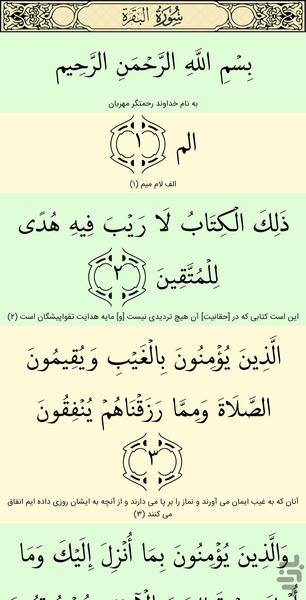 سُورَةُ البَقَرَة
بِسْمِ اللَّهِ الرَّحْمَنِ الرَّحِيمِ
به نام خداوند رحمتگر مهربان
الم ١
الف لام میم (۱)
ذَلِكَ الْكِتَابُ لَا رَيْبَ فِيهِ هُدًى
لِلْمُتَّقِينَ ٢
این است کتابی که در [حقانیت] آن هیچ تردیدی نیست [و] مایه هدایت تقواپیشگان است (۲)
الَّذِينَ يُؤْمِنُونَ بِالْغَيْبِ وَيُقِيمُونَ
الصَّلَاةَ وَمِمَّا رَزَقْنَاهُمْ يُنْفِقُونَ
٣
آنان که به غیب ایمان می آورند و نماز را بر پا می دارند و از آنچه به ایشان روزی داده ایم انفاق
می کنند (۳)
وَالَّذِينَ يُؤْمِنُونَ بِمَا أُنْزِلَ إِلَيْكَ وَمَا